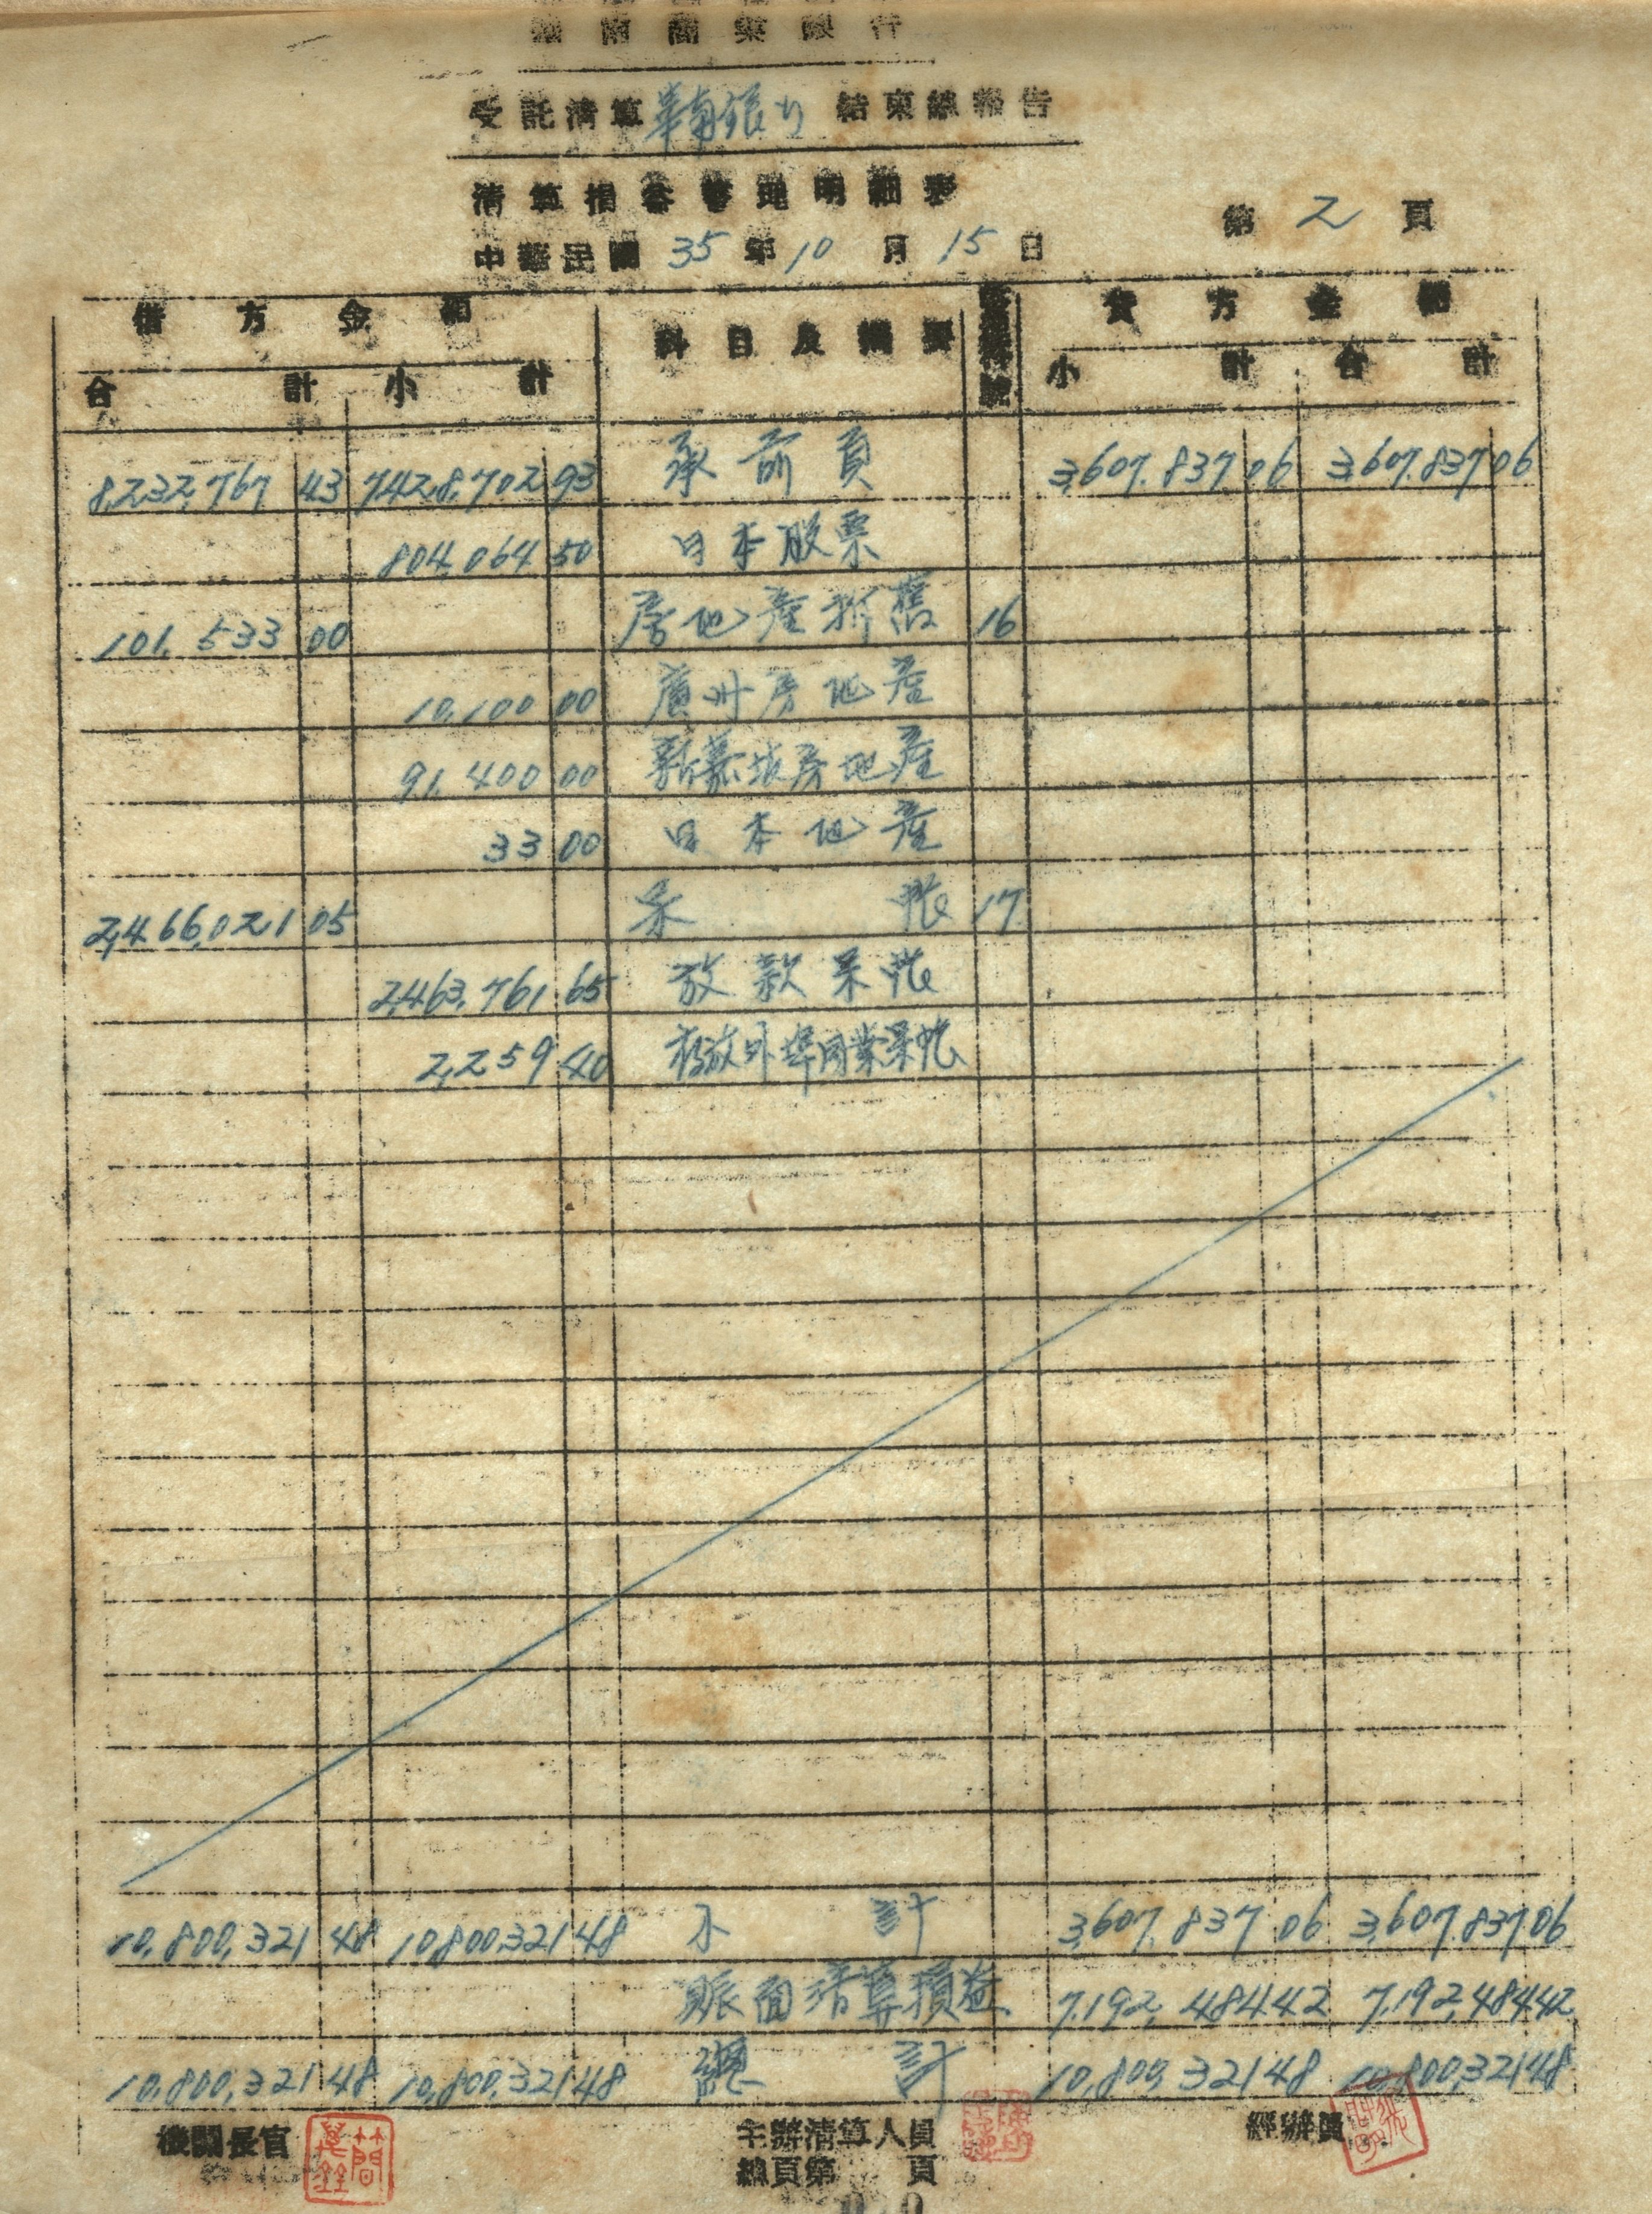 華南商業銀行
受託清算華南銀行結束總報告
清算損益整理明細表
中華民國35年10月15日
第2頁
借方金額 科目及摘要 貸方金額
合計 小計 小計 合計
8,232,767 43 7,428,702 93 承前頁 3,607,837 06 3,607,837 06
804,064 50 日本股票
101,533 00 房地產折舊 16
10,100 00 廣州房地產
91,400 00 新嘉坡房地產
33 00 日本地產
2,466,021 05 呆帳 17
2,463,761 65 放款呆帳
2,259 40 存放外埠同業呆帳
10,800,321 48 10,800,321 48 小計 3,607,837 06 3,607,837 06
賬面清算損益 7,192,484 42 7,192,484 42
10,800,321 48 10,800,321 48 總計 10,800,321 48 10,800,321 48
機關長官 主辦清算人員 經辦員
總頁第 頁